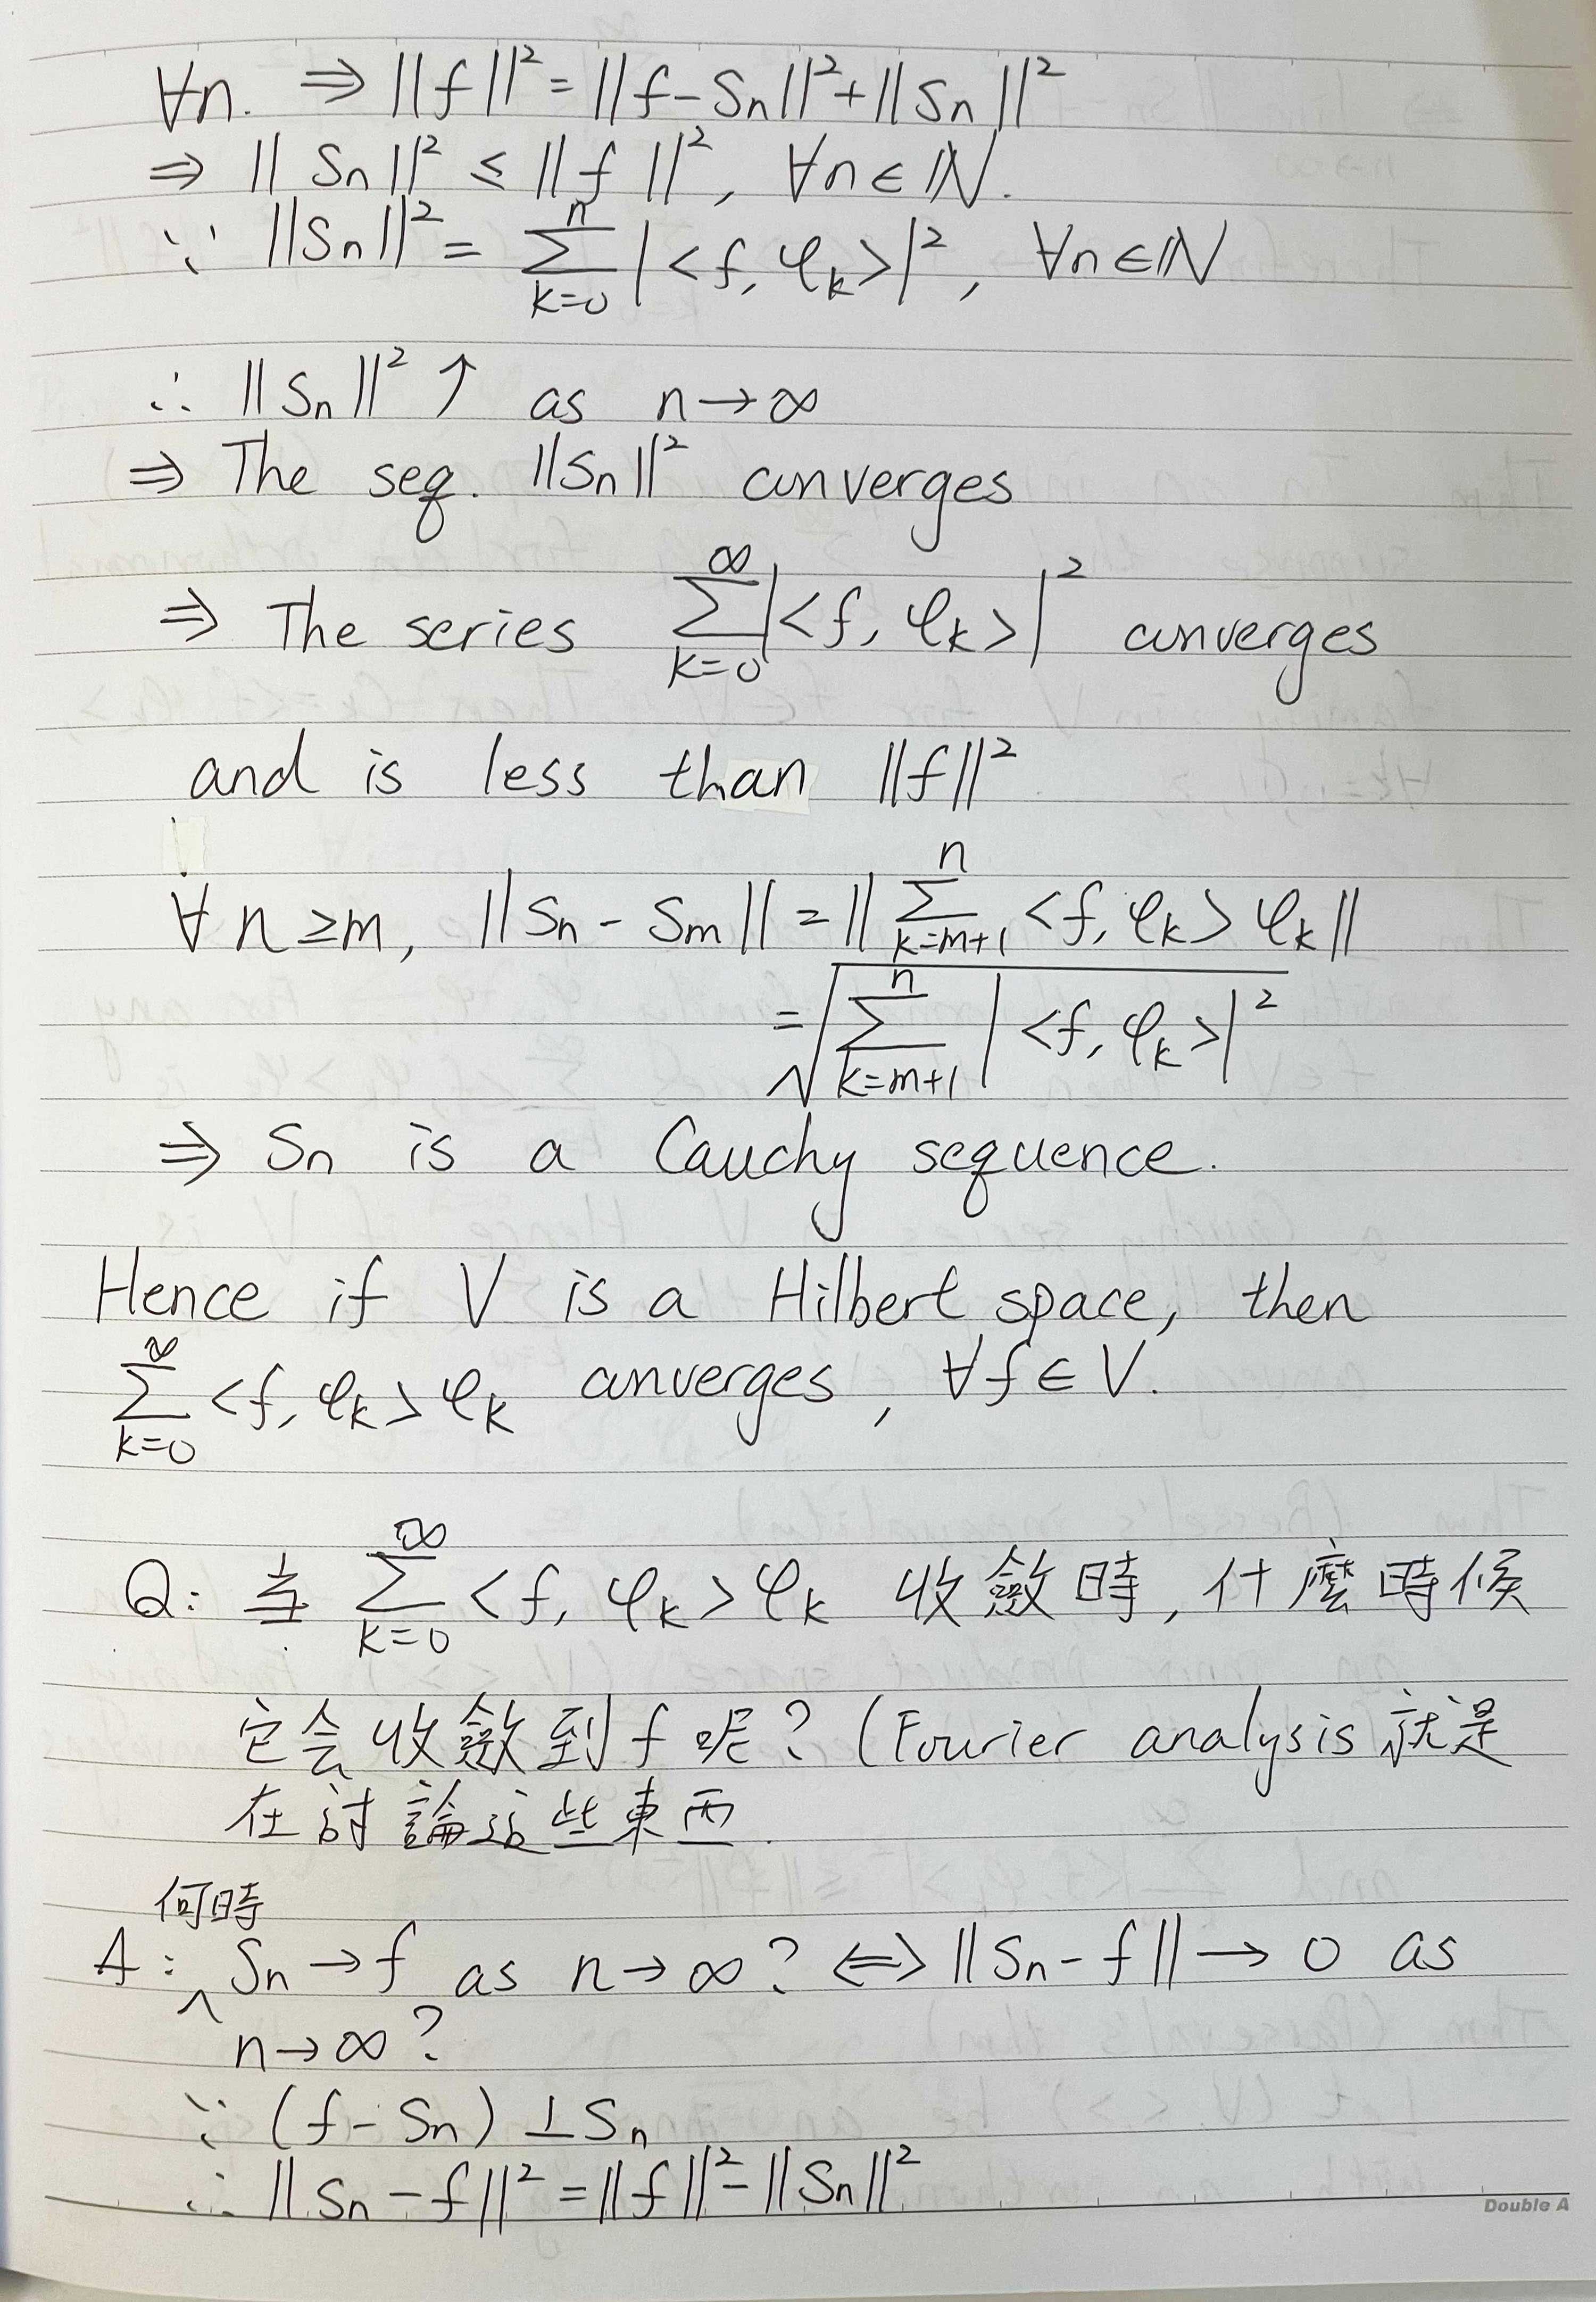 ∀n. ⇒ ||f||² = ||f-Sn||² + ||Sn||²
⇒ ||Sn||² ≤ ||f||², ∀n∈ℕ.
∵ ||Sn||² = Σ_{k=0}^{n} |<f, φ_k>|², ∀n∈ℕ
∴ ||Sn||² ↑ as n→∞
⇒ The seq. ||Sn||² converges
⇒ The series Σ_{k=0}^{∞} |<f, φ_k>|² converges
and is less than ||f||²
∀ n≥m, ||Sn - Sm|| = || Σ_{k=m+1}^{n} <f, φ_k> φ_k ||
= √(Σ_{k=m+1}^{n} |<f, φ_k>|²)
⇒ Sn is a Cauchy sequence.
Hence if V is a Hilbert space, then
Σ_{k=0}^{∞} <f, φ_k> φ_k converges, ∀f∈V.
Q: 当 Σ_{k=0}^{∞} <f, φ_k> φ_k 收斂時, 什麼時候
它会收斂到 f 呢? (Fourier analysis 就是
在討論這些東西.
何時
A: ^ Sn→f as n→∞? ⇔ ||Sn-f|| → 0 as
n→∞?
∵ (f-Sn) ⊥ Sn
∴ ||Sn-f||² = ||f||² - ||Sn||²
Double A